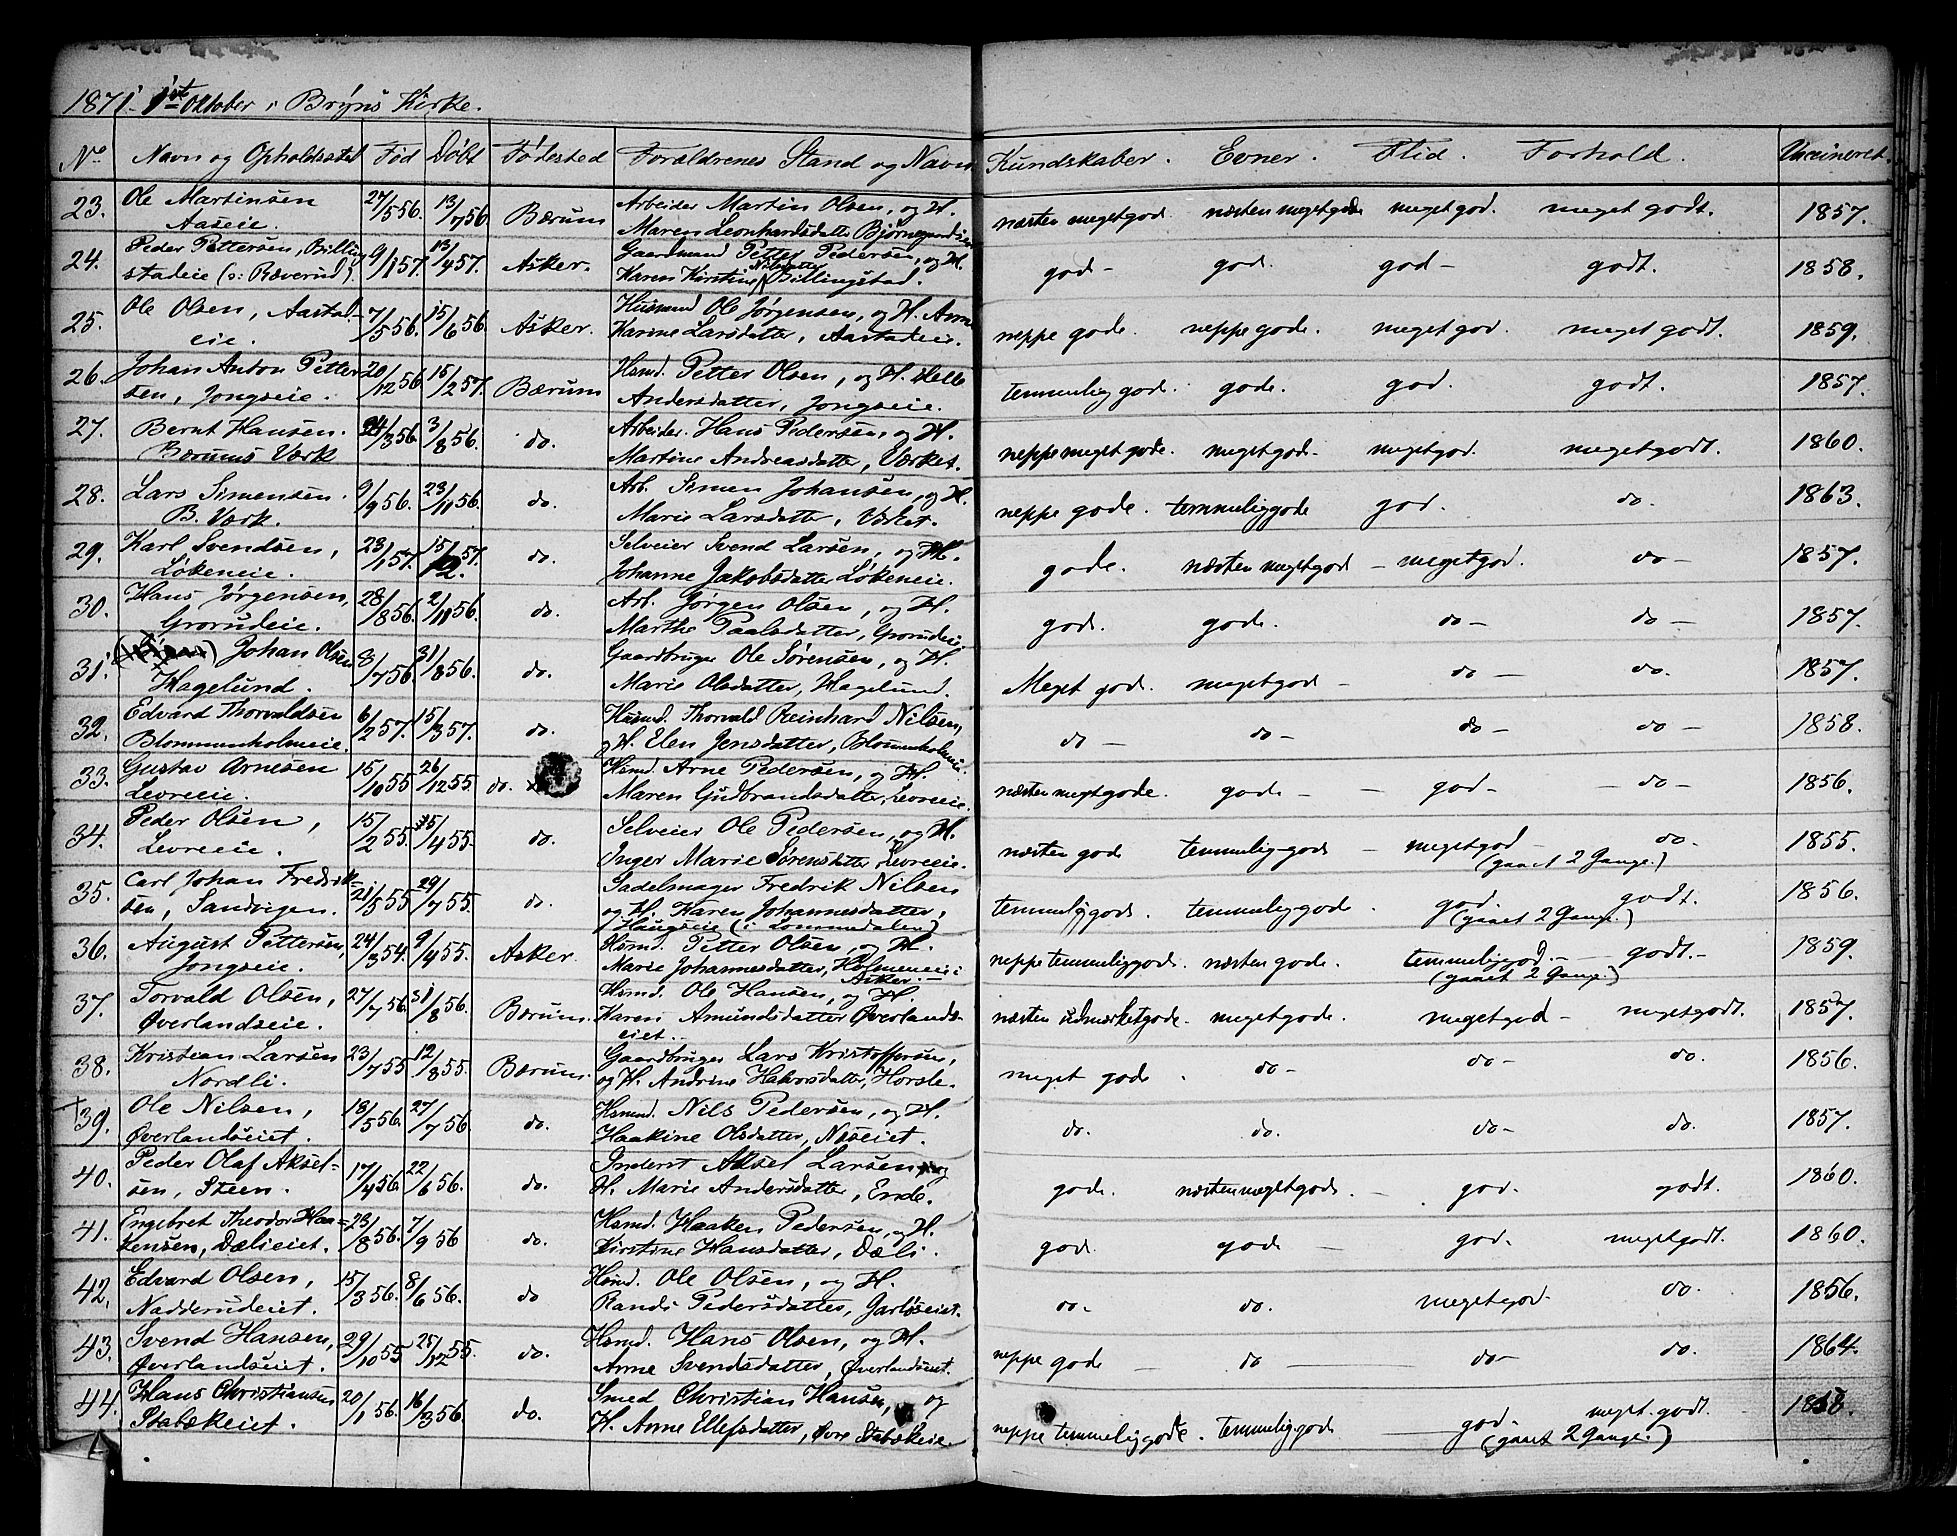 1871. 1ste Oktober i Bryns Kirke.
No Navn og Opholdssted Fød Døbt Fødested Forældrenes Stand og Navn Kundskaber. Evner. Flid. Forhold. Vaccineret.
23. Ole Martinsen 27/5 56. 13/7 56 Bærum Arbeider Martin Olsen, og H. næsten meget god. næsten meget gode meget god. meget godt. 1857.
Aaseie. Maren Leonhardsdatter
24. Peder Pettersen, Billing 9/1 57. 13/4 57. Asker. Gaardmand Petter Pedersen, og H. god - god. god - godt. 1858.
stadeie (o: Ræverud) Karen Kirstine Nilsdatter Billingstad.
25. Ole Olsen, Aastad- 7/5 56. 15/6 56 Asker. Husmd Ole Jørgensen, og H. Anne neppe gode. neppe gode. meget god. meget godt. 1859.
eie. Karine Larsdatter, Aastadeie.
26. Johan Anton Petter 20/12 56. 15/2 57. Bærum Hsmd. Petter Olsen, og H. Helle temmelig gode. gode. god. godt. 1857.
sen, Jongseie. Andersdatter, Jongseie.
27. Bernt Hansen. 24/3 56. 3/8 56. do. Arbeider. Hans Pedersen, og H. neppe meget gode. meget god. meget god. meget godt. 1860.
Bærums Værk Martine Andreasdatter, Værket.
28. Lars Simensen. 9/9 56. 23/11 56. do. Arb. Simen Johansen, og H. neppe gode. temmelig gode god. do. 1863.
B. Værk. Marie Larsdatter, Værket.
29. Karl Svendsen, 23/1 57. 15/2 57. do. Selveier Svend Larsen, og H. gode. næsten meget god - meget god. do - 1857.
Løkeneie. Johanne Jakobsdatter Løkeneie.
30. Hans Jørgensen, 28/8 56. 2/11 56. do. Arb. Jørgen Olsen, og H. god. gode. do - do - 1857.
Grorudeie. Marthe Paalsdatter, Grorudeie.
31. Johan Olsen 8/7 56. 31/8 56. do. Gaardbruger Ole Sørensen, og H. Meget god. meget god - do - do. 1857.
Hagelund. Marie Olsdatter, Hagelund.
32. Edvard Thorvaldsen 6/2 57. 15/3 57. do. Husmd. Thorvald Reinhard Nilsen, do - do - do - do - 1858.
Blommenholmeie. og H. Elen Jensdatter, Blommenholmeie.
33. Gustav Arnesen 15/10 55 26/12 55. do. Hsmd. Arne Pedersen, og H. næsten meget gode. gode - god - - do - 1856.
Levreeie. Maren Gudbrandsdatter, Levreeie.
34. Peder Olsen, 15/2 55. 15/4 55. do. Selveier Ole Pedersen, og H. næsten gode temmelig gode - meget god do. 1855.
Levreeie. Inger Marie Sørensdatter Levreeie. (gaaet 2 Gange.)
35. Carl Johan Fredrik- 21/5 55 29/7 55. do. Sadelmager Fredrik Nilsen temmelig gode. temmelig gode. god. godt. 1856.
sen, Sandvigen. og H. Karen Johannesdatter, (gaaet 2 Gange.)
Haugseie (i Lommedalen)
36. August Pettersen, 24/3 54. 9/4 55. Asker. Hsmd. Petter Olsen, og H. neppe temmelig gode. næsten gode. temmelig god. - godt. - 1859.
Jongseie. Marie Johannesdatter, Holmeneie i (gaaet 2 Gange.)
Asker. -
37. Torvald Olsen, 27/7 56. 31/8 56. Bærum. Hsmd. Ole Hansen, og H. næsten udmærket gode. meget gode. meget god - meget godt. 1857.
Øverlandseie. Karen Amundsdatter Øverlands-
eiet.
38. Kristian Larsen 23/7 55 12/8 55. Bærum. Gaardbruger Lars Kristoffersen, meget gode. do - do - do. 1856.
Nordli. og H. Andrine Halvorsdatter, Horsle.
39. Ole Nilsen, 18/5 56. 27/7 56. do. Hsmd. Nils Pedersen, og H. do. do. do - do. 1857.
Øverlandseiet. Haakine Olsdatter, Næseiet.
40. Peder Olaf Aksel- 17/4 56 22/6 56. do. Inderst Aksel Larsen, og gode. næsten meget gode. - god. godt. 1860.
sen, Steen. H. Marie Andersdatter, Ende.
41. Engebret Theodor Haa- 23/8 56. 7/9 56 do. Hsmd. Haaken Pedersen, og H. god. gode - god. meget godt. 1860.
kensen, Dælieiet. Kirstine Hansdatter, Dæli.
42. Edvard Olsen, 15/3 56. 8/6 56. do Hsmd. Ole Olsen, og H. do - do. meget god. do. 1856.
Nadderudeiet. Randi Pedersdatter, Garløseiet.
43. Svend Hansen, 29/10 55 25/12 55. do. Hsmd. Hans Olsen, og H. neppe gode - do - do - do. 1864.
Øverlandseiet. Anne Svendsdatter, Øverlandseiet.
44. Hans Christiansen 20/1 56. 16/3 56. do. Smed Christian Hansen, og neppe temmelig gode. temmelig gode god - meget godt. 1858.
Stabækeiet. H. Anne Ellefsdatter, Øvre Stabækeie. (gaaet 2 Gange.)